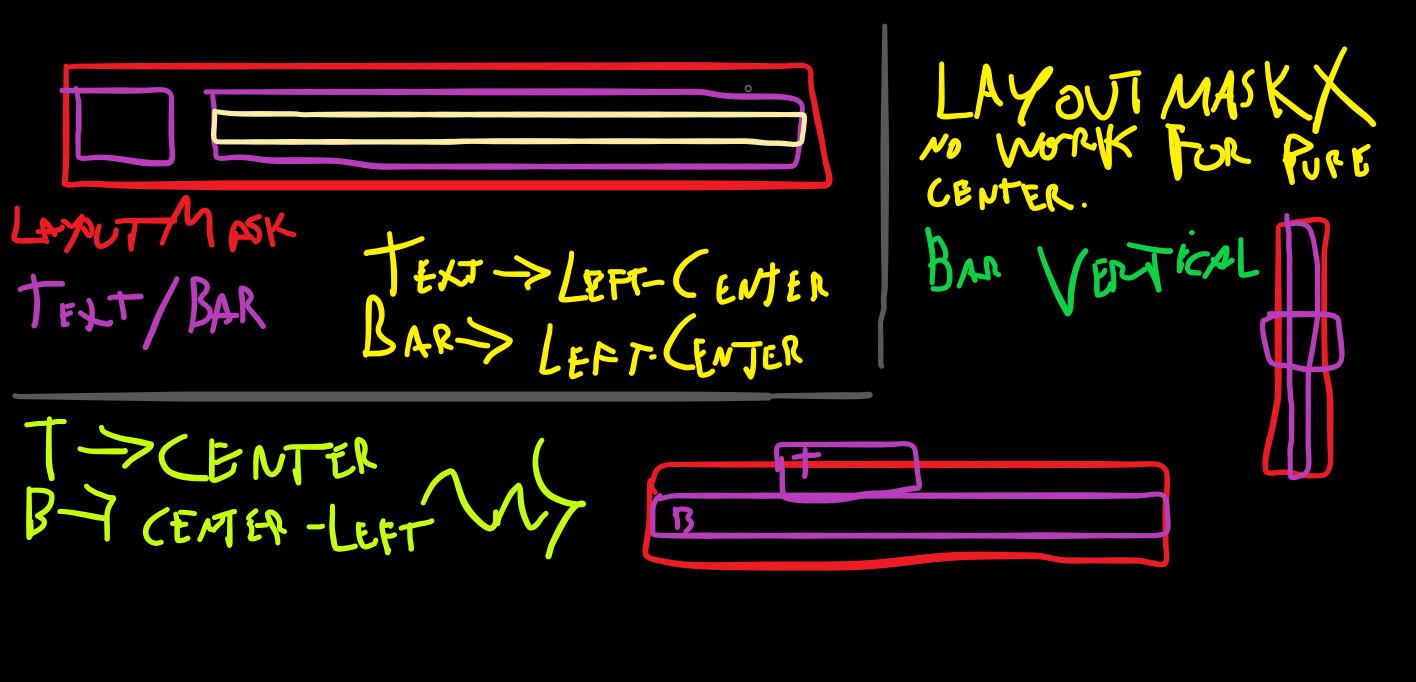 LAYOUT/MASK
TEXT/BAR
TEXT → LEFT-CENTER
BAR → LEFT-CENTER
LAYOUT MASK X
NO WORK FOR PURE
CENTER.
BAR VERTICAL
T → CENTER
B → CENTER-LEFT
T
B